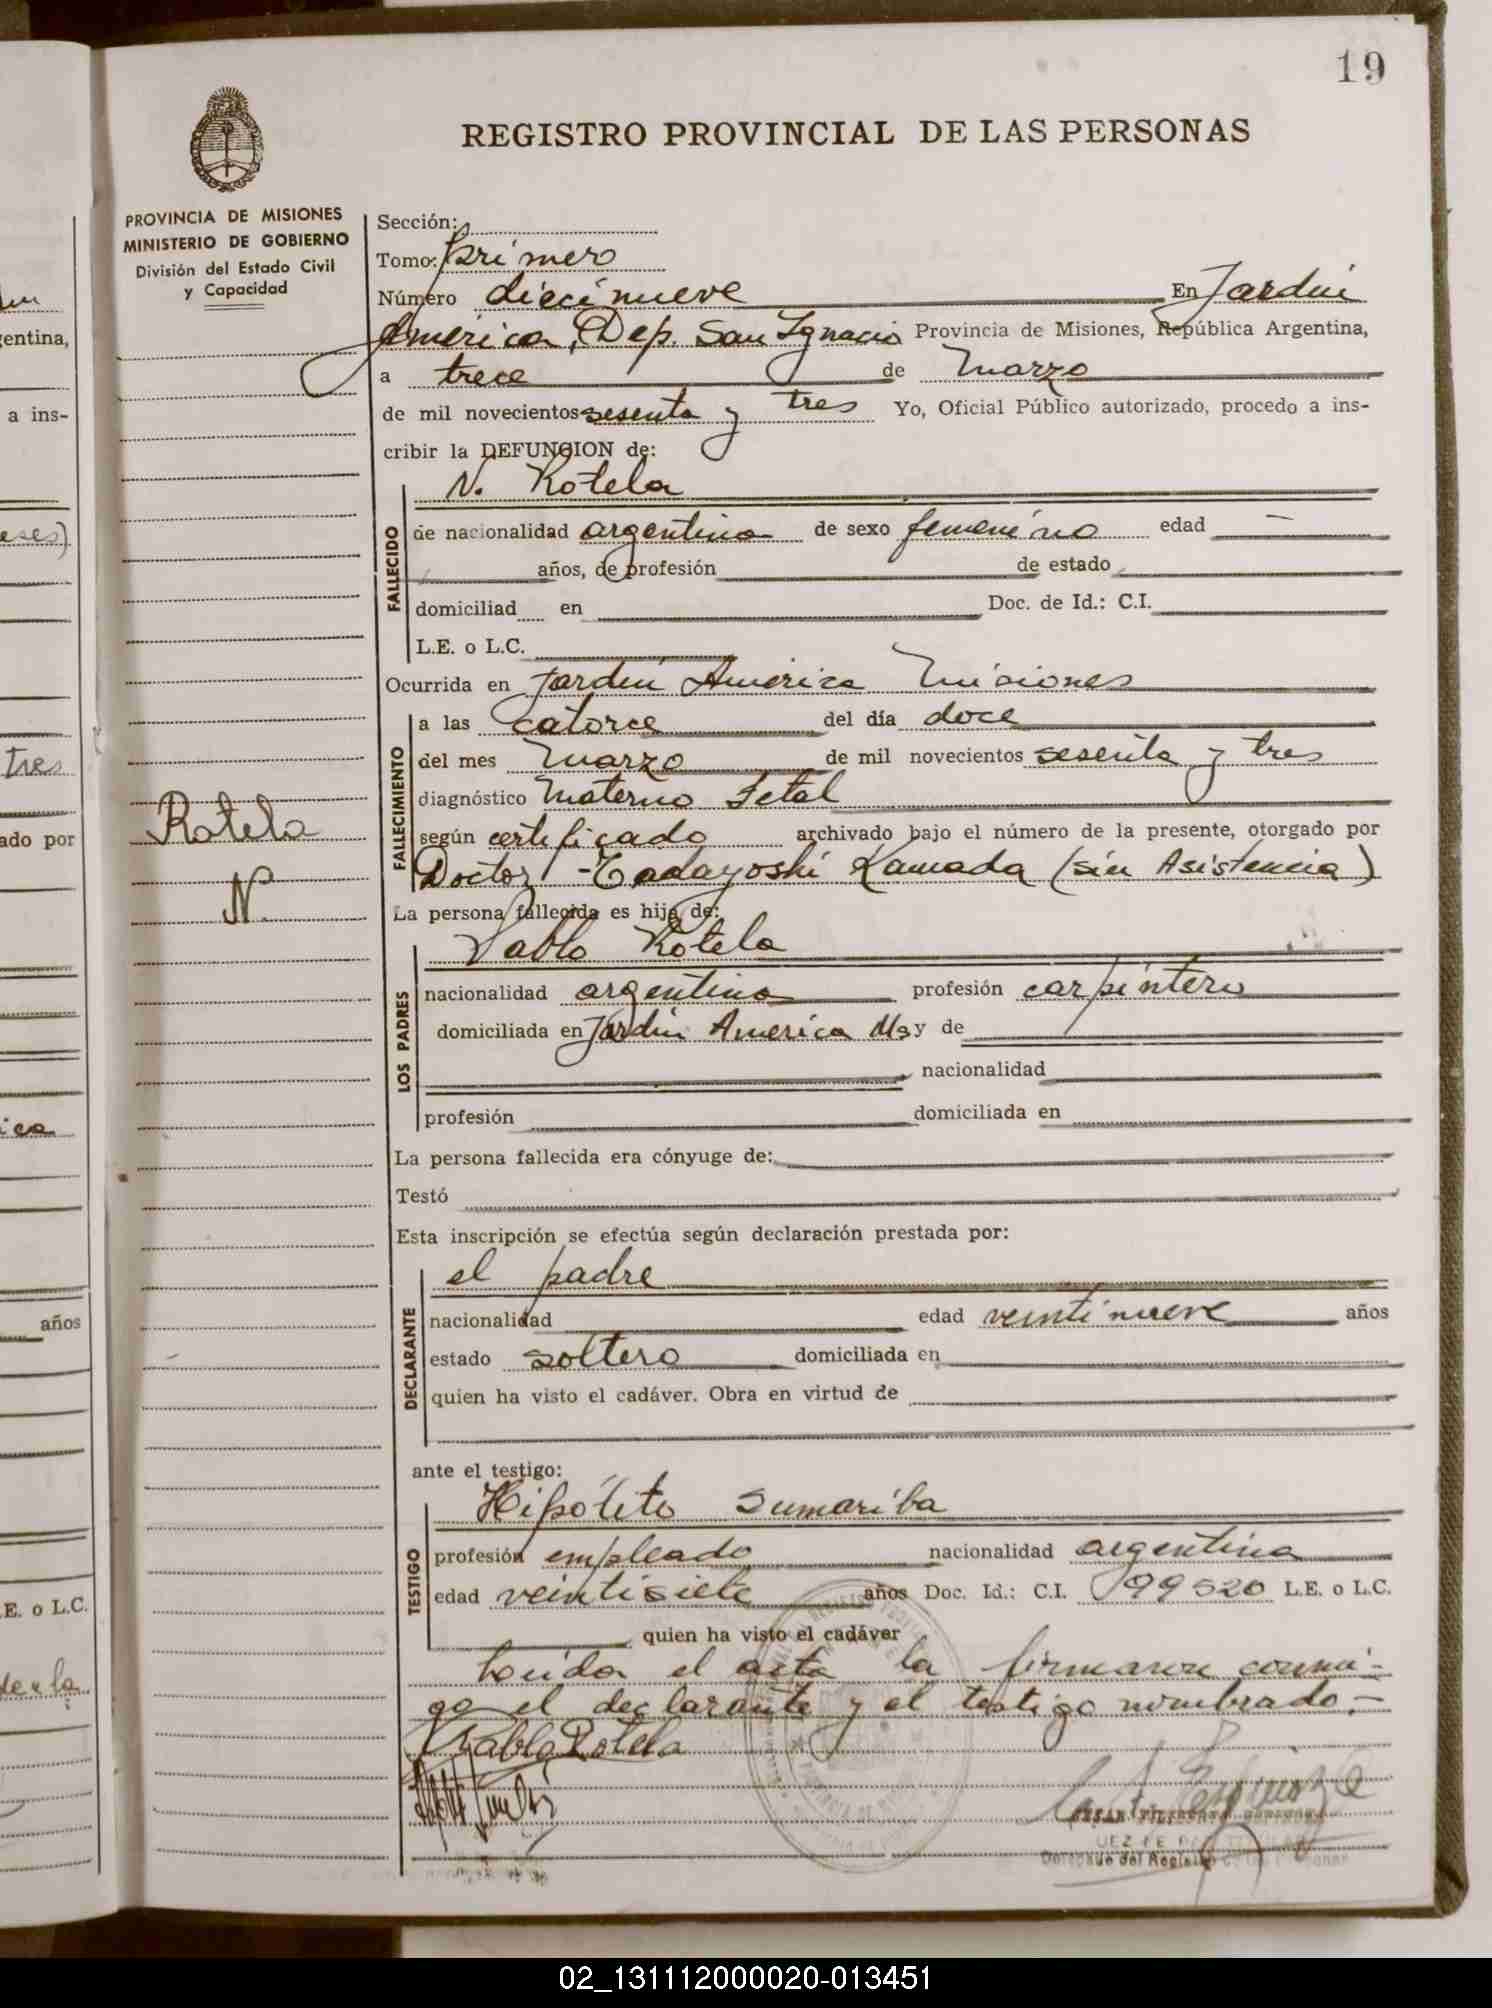 19
REGISTRO PROVINCIAL DE LAS PERSONAS
PROVINCIA DE MISIONES
MINISTERIO DE GOBIERNO
División del Estado Civil
y Capacidad
Rotela
N.
Sección:
Tomo: primero
Número diecinueve En Jardin
America, Dep. San Ignacio Provincia de Misiones, República Argentina,
a trece de Marzo
de mil novecientos sesenta y tres Yo, Oficial Público autorizado, procedo a ins-
cribir la DEFUNCION de:
N. Rotela
FALLECIDO
de nacionalidad argentina de sexo femenino edad —
años, de profesión de estado
domiciliad en Doc. de Id.: C.I.
L.E. o L.C.
Ocurrida en Jardin America Misiones
FALLECIMIENTO
a las catorce del día doce
del mes Marzo de mil novecientos sesenta y tres
diagnóstico Materno Fetal
según certificado archivado bajo el número de la presente, otorgado por
Doctor - Tadayoshi Kamada (sin Asistencia)
La persona fallecida es hija de:
LOS PADRES
Pablo Rotela
nacionalidad argentina profesión carpintero
domiciliada en Jardin America Ms y de
nacionalidad
profesión domiciliada en
La persona fallecida era cónyuge de:
Testó
Esta inscripción se efectúa según declaración prestada por:
DECLARANTE
el padre
nacionalidad edad veintinueve años
estado soltero domiciliada en
quien ha visto el cadáver. Obra en virtud de
ante el testigo:
TESTIGO
Hipólito Sumariba
profesión empleado nacionalidad argentina
edad veintisiete años Doc. Id.: C.I. 99520 L.E. o L.C.
quien ha visto el cadáver
Leida el acta la firmaron conmi-
go el declarante y el testigo nombrado.-
Pablo Rotela
Delegado del Registro
entina,
a ins-
eses)
tres
ado por
ica
años
E. o L.C.
02_131112000020-013451